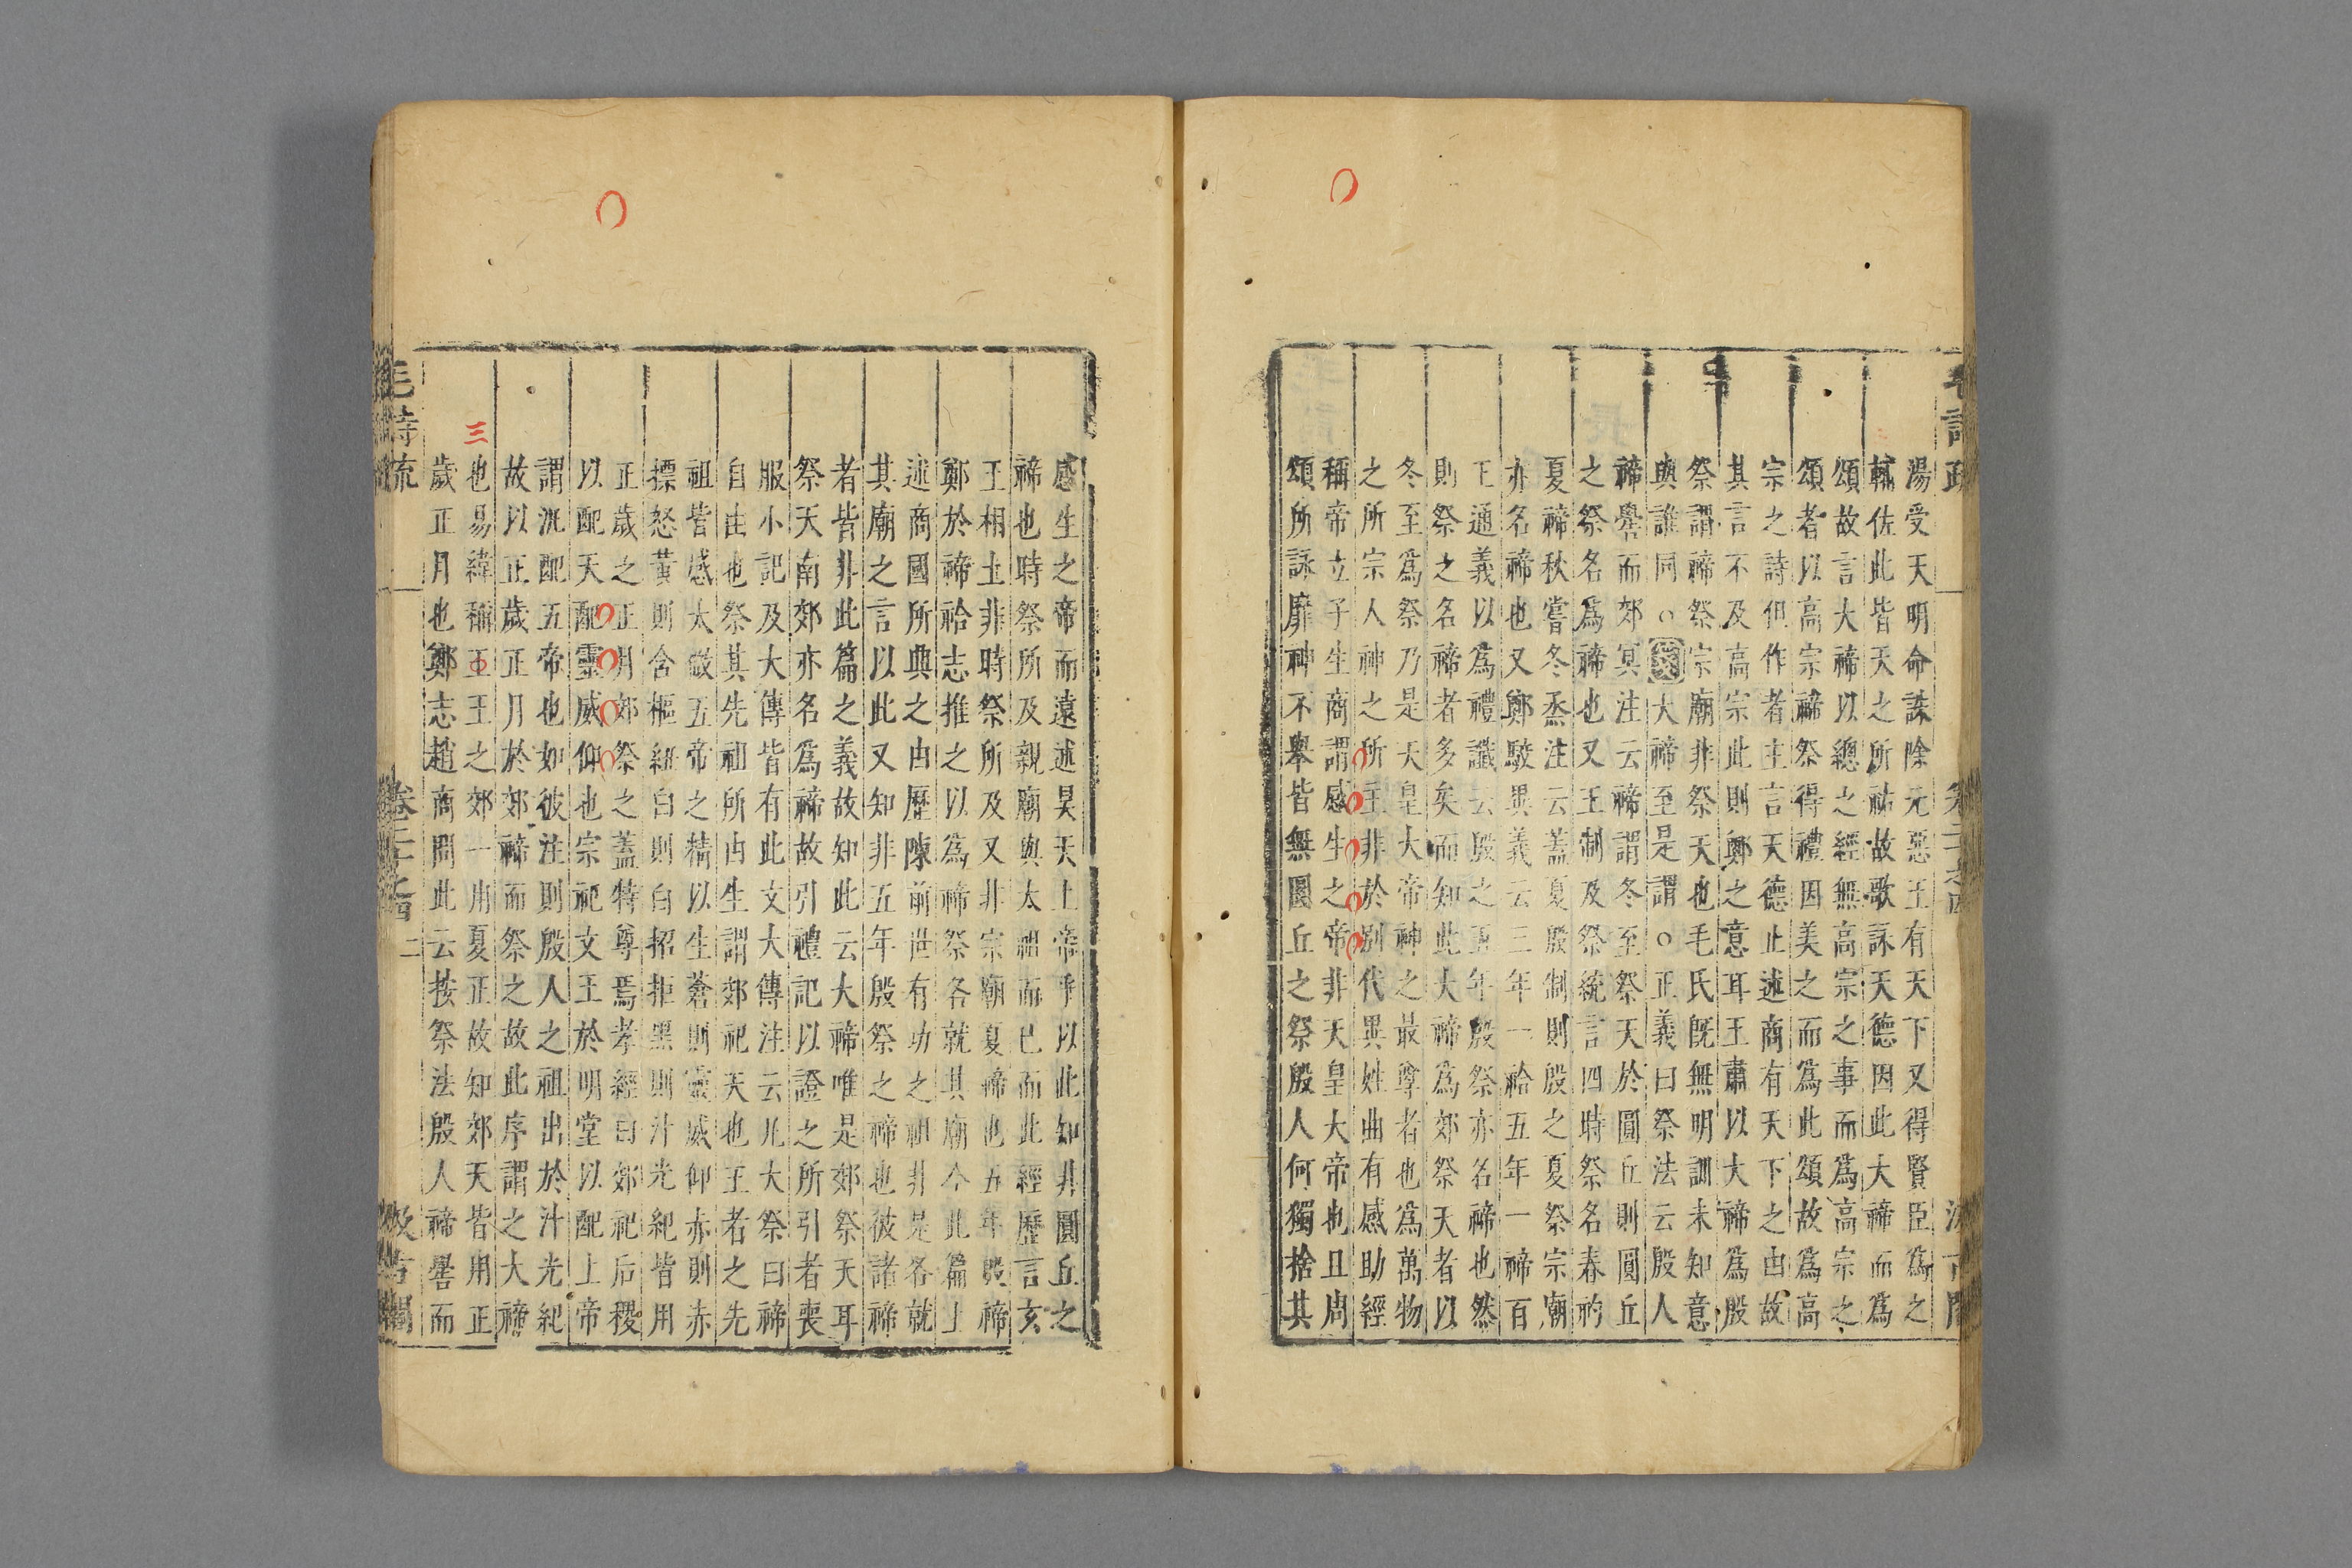 湯受天明命誅除元惡王有天下又得賢臣爲之
輔佐此皆天之所祐故歌詠天德因此大禘而爲
頌故言大禘以總之經無高宗之事而爲高宗之
頌者以高宗禘祭得禮因美之而爲此頌故爲高
宗之詩但作者主言天德止述商有天下之由故
其言不及高宗此則鄭之意耳王肅以大禘爲殷
祭謂禘祭宗廟非祭天也毛氏旣無明訓未知意
與誰同○大禘至是謂○正義曰祭法云殷人
禘嚳而郊冥注云禘謂冬至祭天於圓丘則圓丘
之祭名爲禘也又王制及祭統言四時祭名春礿
夏禘秋嘗冬烝注云蓋夏殷制則殷之夏祭宗廟
亦名禘也又鄭駮異義云三年一祫五年一禘百
王通義以爲禮讖云殷之五年殷祭亦名禘也然
則祭之名禘者多矣而知此大禘爲郊祭天者以
冬至爲祭乃是天皇大帝神之最尊者也爲萬物
之所宗人神之所主非於別代異姓曲有感助經
稱帝立子生商謂感生之帝非天皇大帝也且周
頌所詠靡神不舉皆無圜丘之祭殷人何獨捨其
感生之帝而遠述昊天上帝乎以此知非圜丘之
禘也時祭所及親廟與太祖而已而此經歷言玄
王相土非時祭所及又非宗廟夏禘也五年殷禘
鄭於禘祫志推之以爲禘祭各就其廟今此篇上
述商國所典之由歷陳前世有功之祖非是各就
其廟之言以此又知非五年殷祭之禘也彼諸禘
者皆非此篇之義故知此云大禘唯是郊祭天耳
祭天南郊亦名爲禘故引禮記以證之所引者喪
服小記及大傳皆有此文大傳注云凡大祭曰禘
自由也祭其先祖所由生謂郊祀天也王者之先
祖皆感太微五帝之精以生蒼則靈威仰赤則赤
摽怒黃則含樞紐白則白招拒黑則汁光紀皆用
正歲之正月郊祭之蓋特尊焉孝經曰郊祀后稷
以配天配靈威仰也宗祀文王於明堂以配上帝
謂汎配五帝也如彼注則殷人之祖出於汁光紀
故以正歲正月於郊禘而祭之故此序謂之大禘
也易緯稱三王之郊一用夏正故知郊天皆用正
歲正月也鄭志趙商問此云按祭法殷人禘嚳而
三
毛詩疏 二 汲古閣